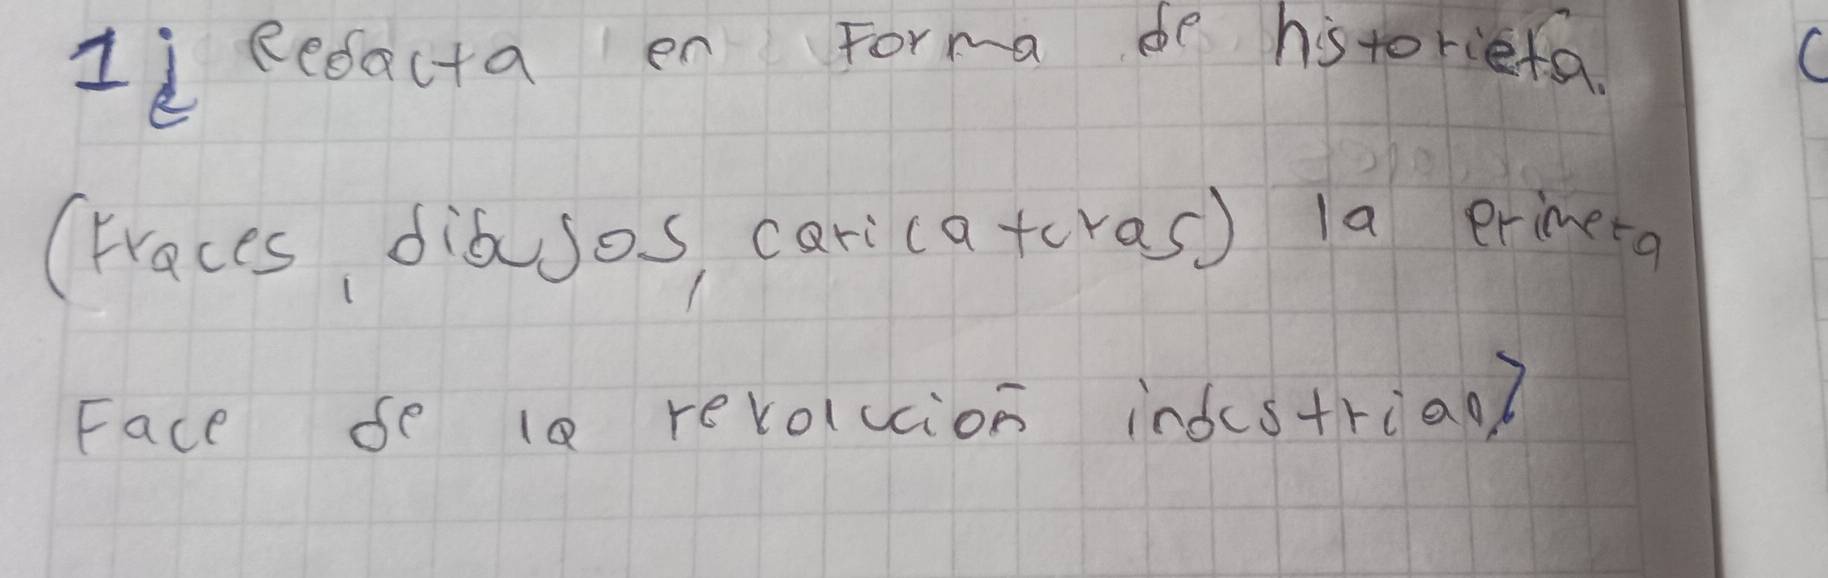 1¿ Redacta en Forma de historieta.
(Fraces, dibujos, caricaturas) la primera
Face de la revolución industrial?